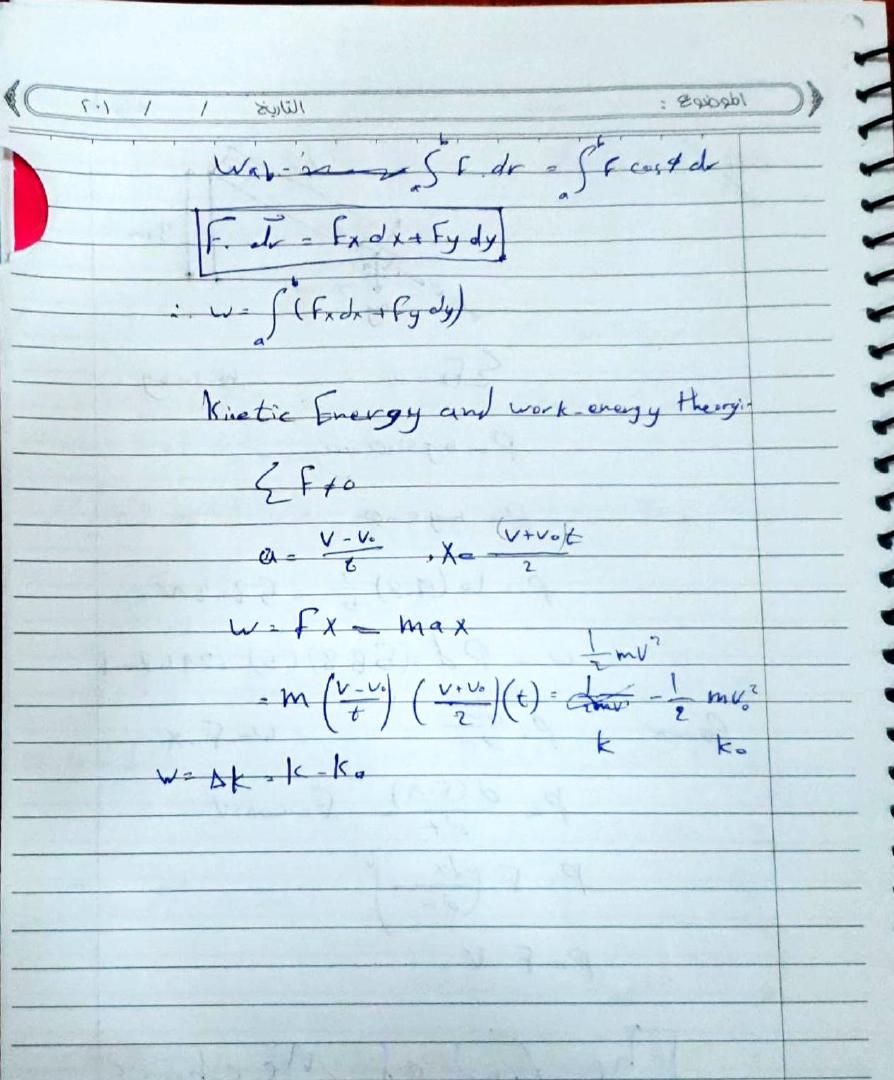 الموضوع : التاريخ / / ٢٠١
Wab = ∫ₐᵇ F . dr = ∫ₐᵇ F cos φ dr
F . dr⃗ = Fx dx + Fy dy
∴ W = ∫ₐᵇ (Fx dx + Fy dy)
Kinetic Energy and work-energy theory:-
Σ F ≠ 0
a = (v - v₀)/t , x = (v + v₀)t/2
W = F x = m a x
= m ((v - v₀)/t) ((v + v₀)/2) (t) = ½ mv² - ½ mv₀²
k k₀
W = Δk = k - k₀